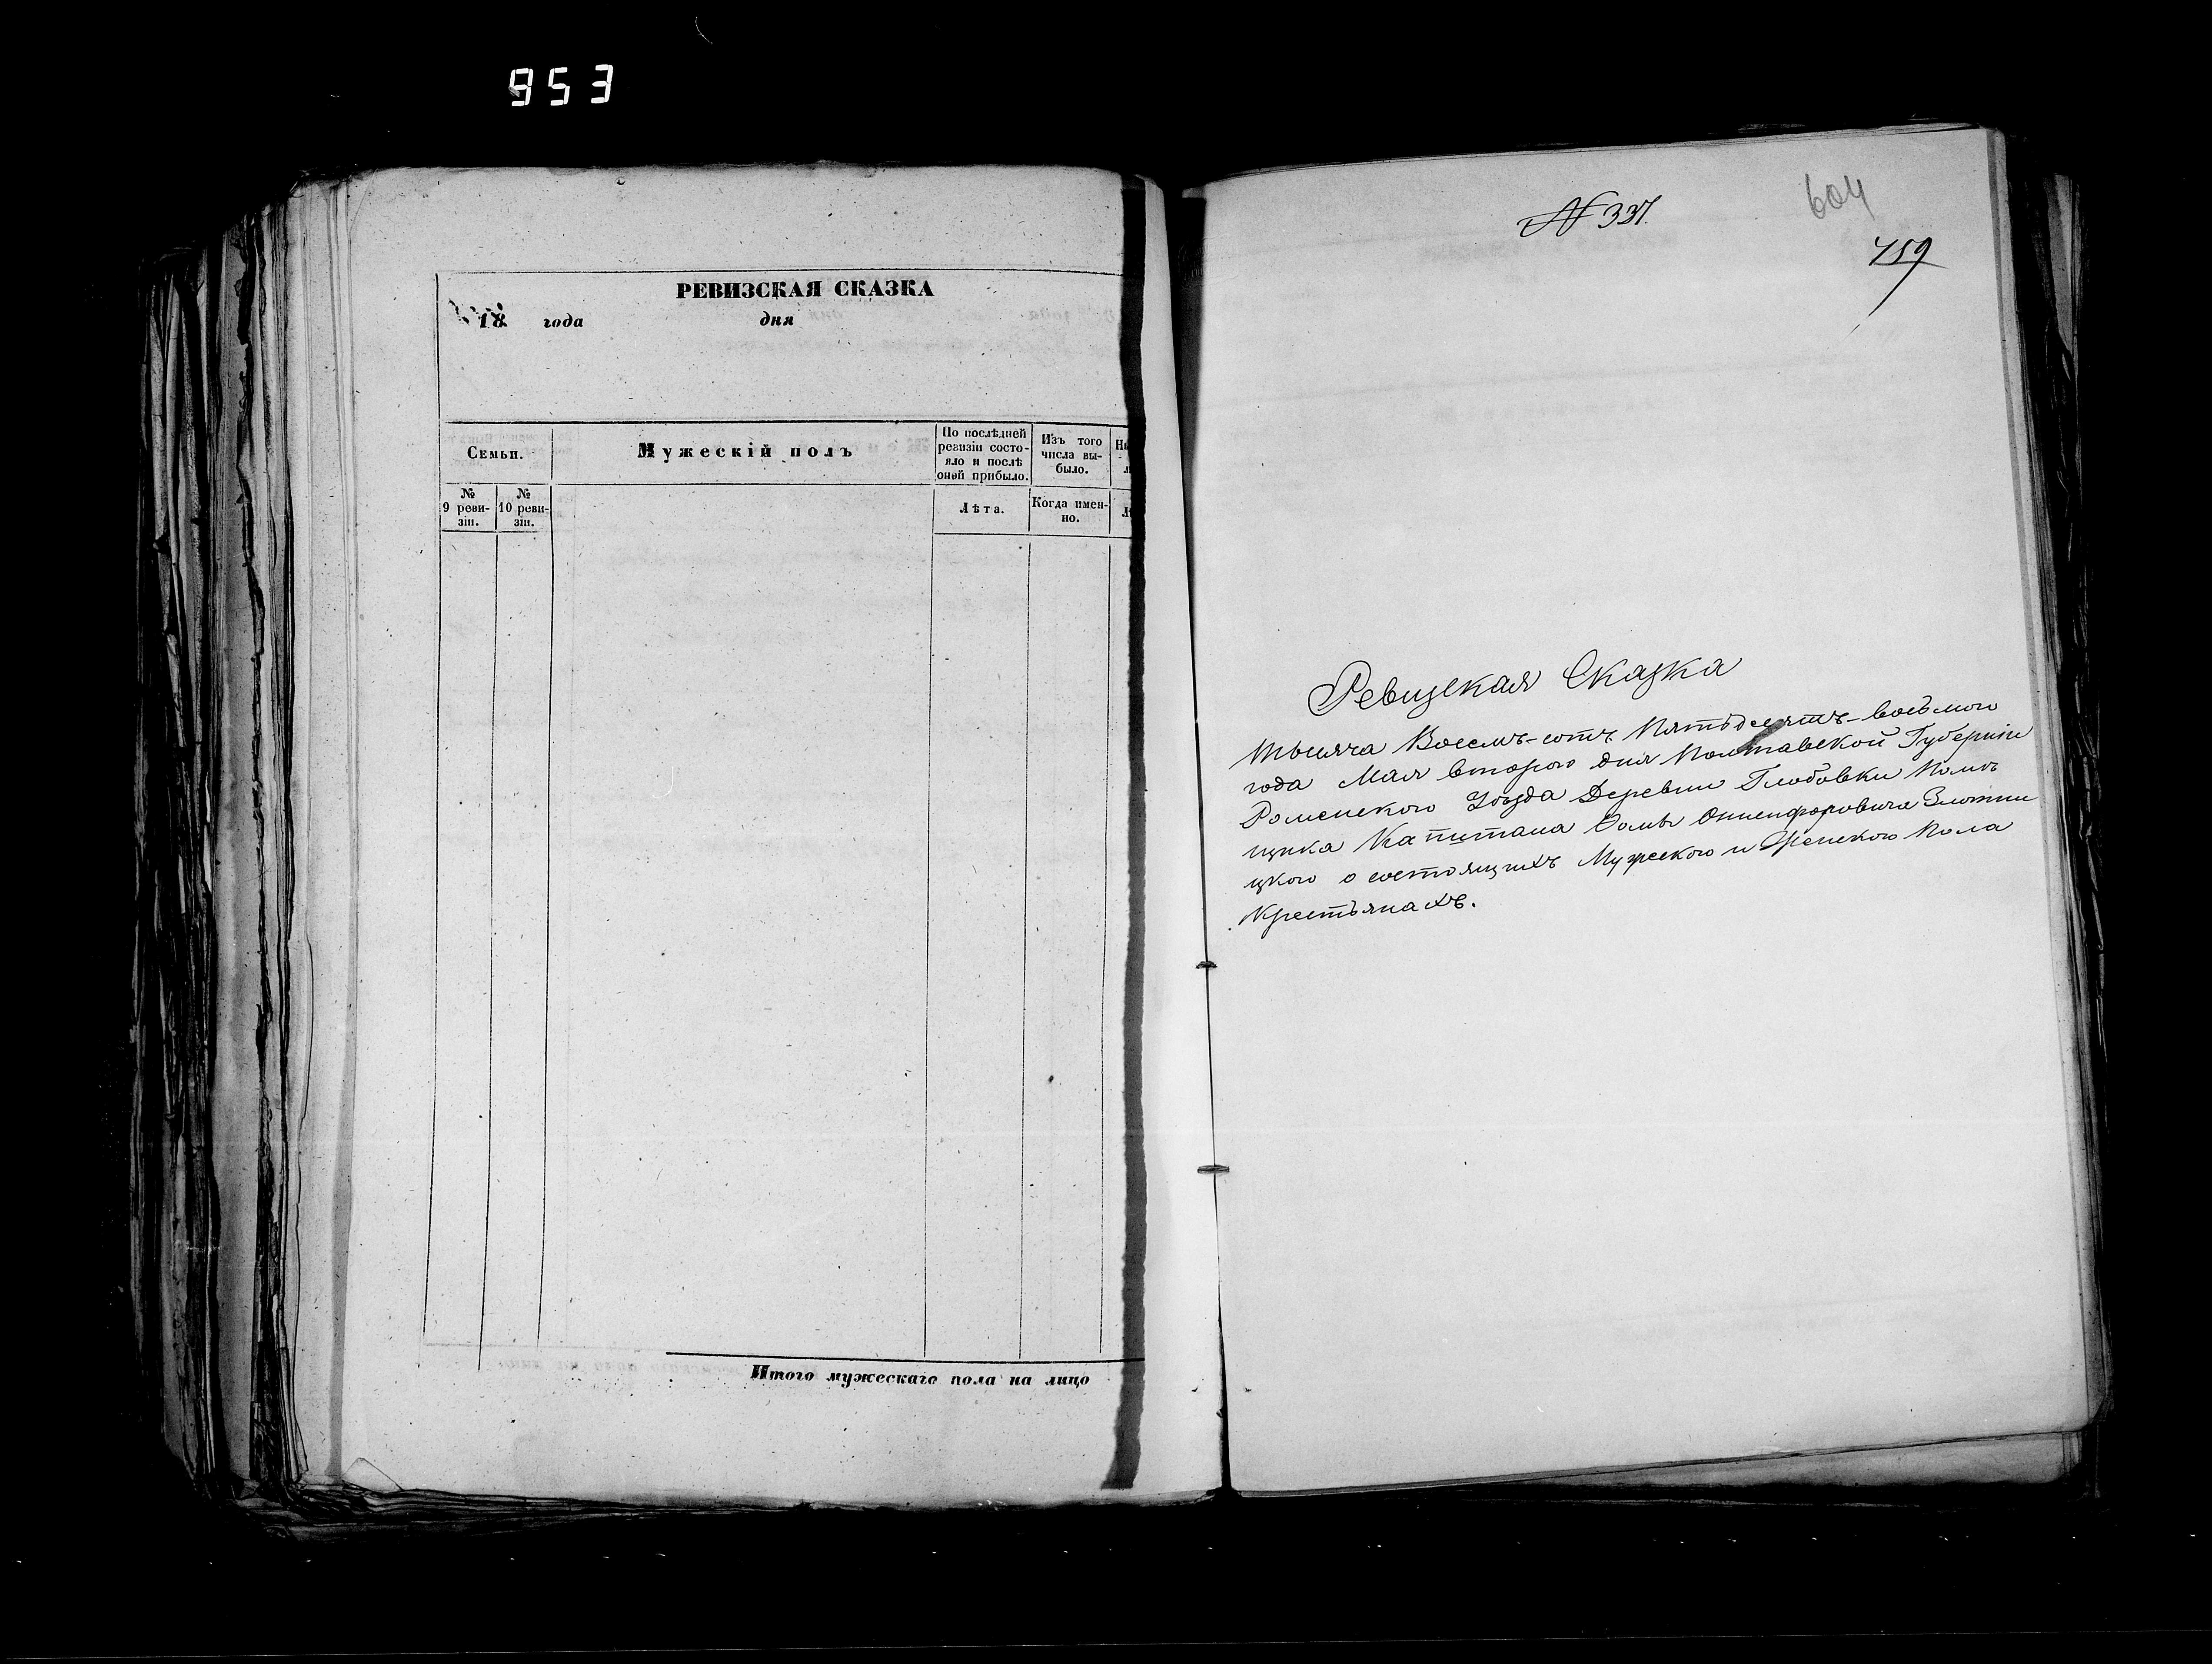 953
РЕВИЗСКАЯ СКАЗКА
18 года дня
Семьи.
Мужескій полъ
По послѣдней
ревизіи состо-
яло и послѣ
оной прибыло.
Изъ того
числа вы-
было.
№
9 реви-
зіи.
№
10 реви-
зіи.
Лѣта.
Когда имен-
но.
Итого мужескаго пола на лицо
№ 337.
604
759
Ревизская Сказка
тысяча Восемь-сотъ Пятьдесятъ-восьмого
года Мая второго дня Полтавской Губерніи
Роменского Уѣзда Деревни Глобовки Помѣ
щика Капитана Ѳомы Онисифоровича Злотни
цкого о состоящихъ Мужского и Женского Пола
Крестьянахъ.